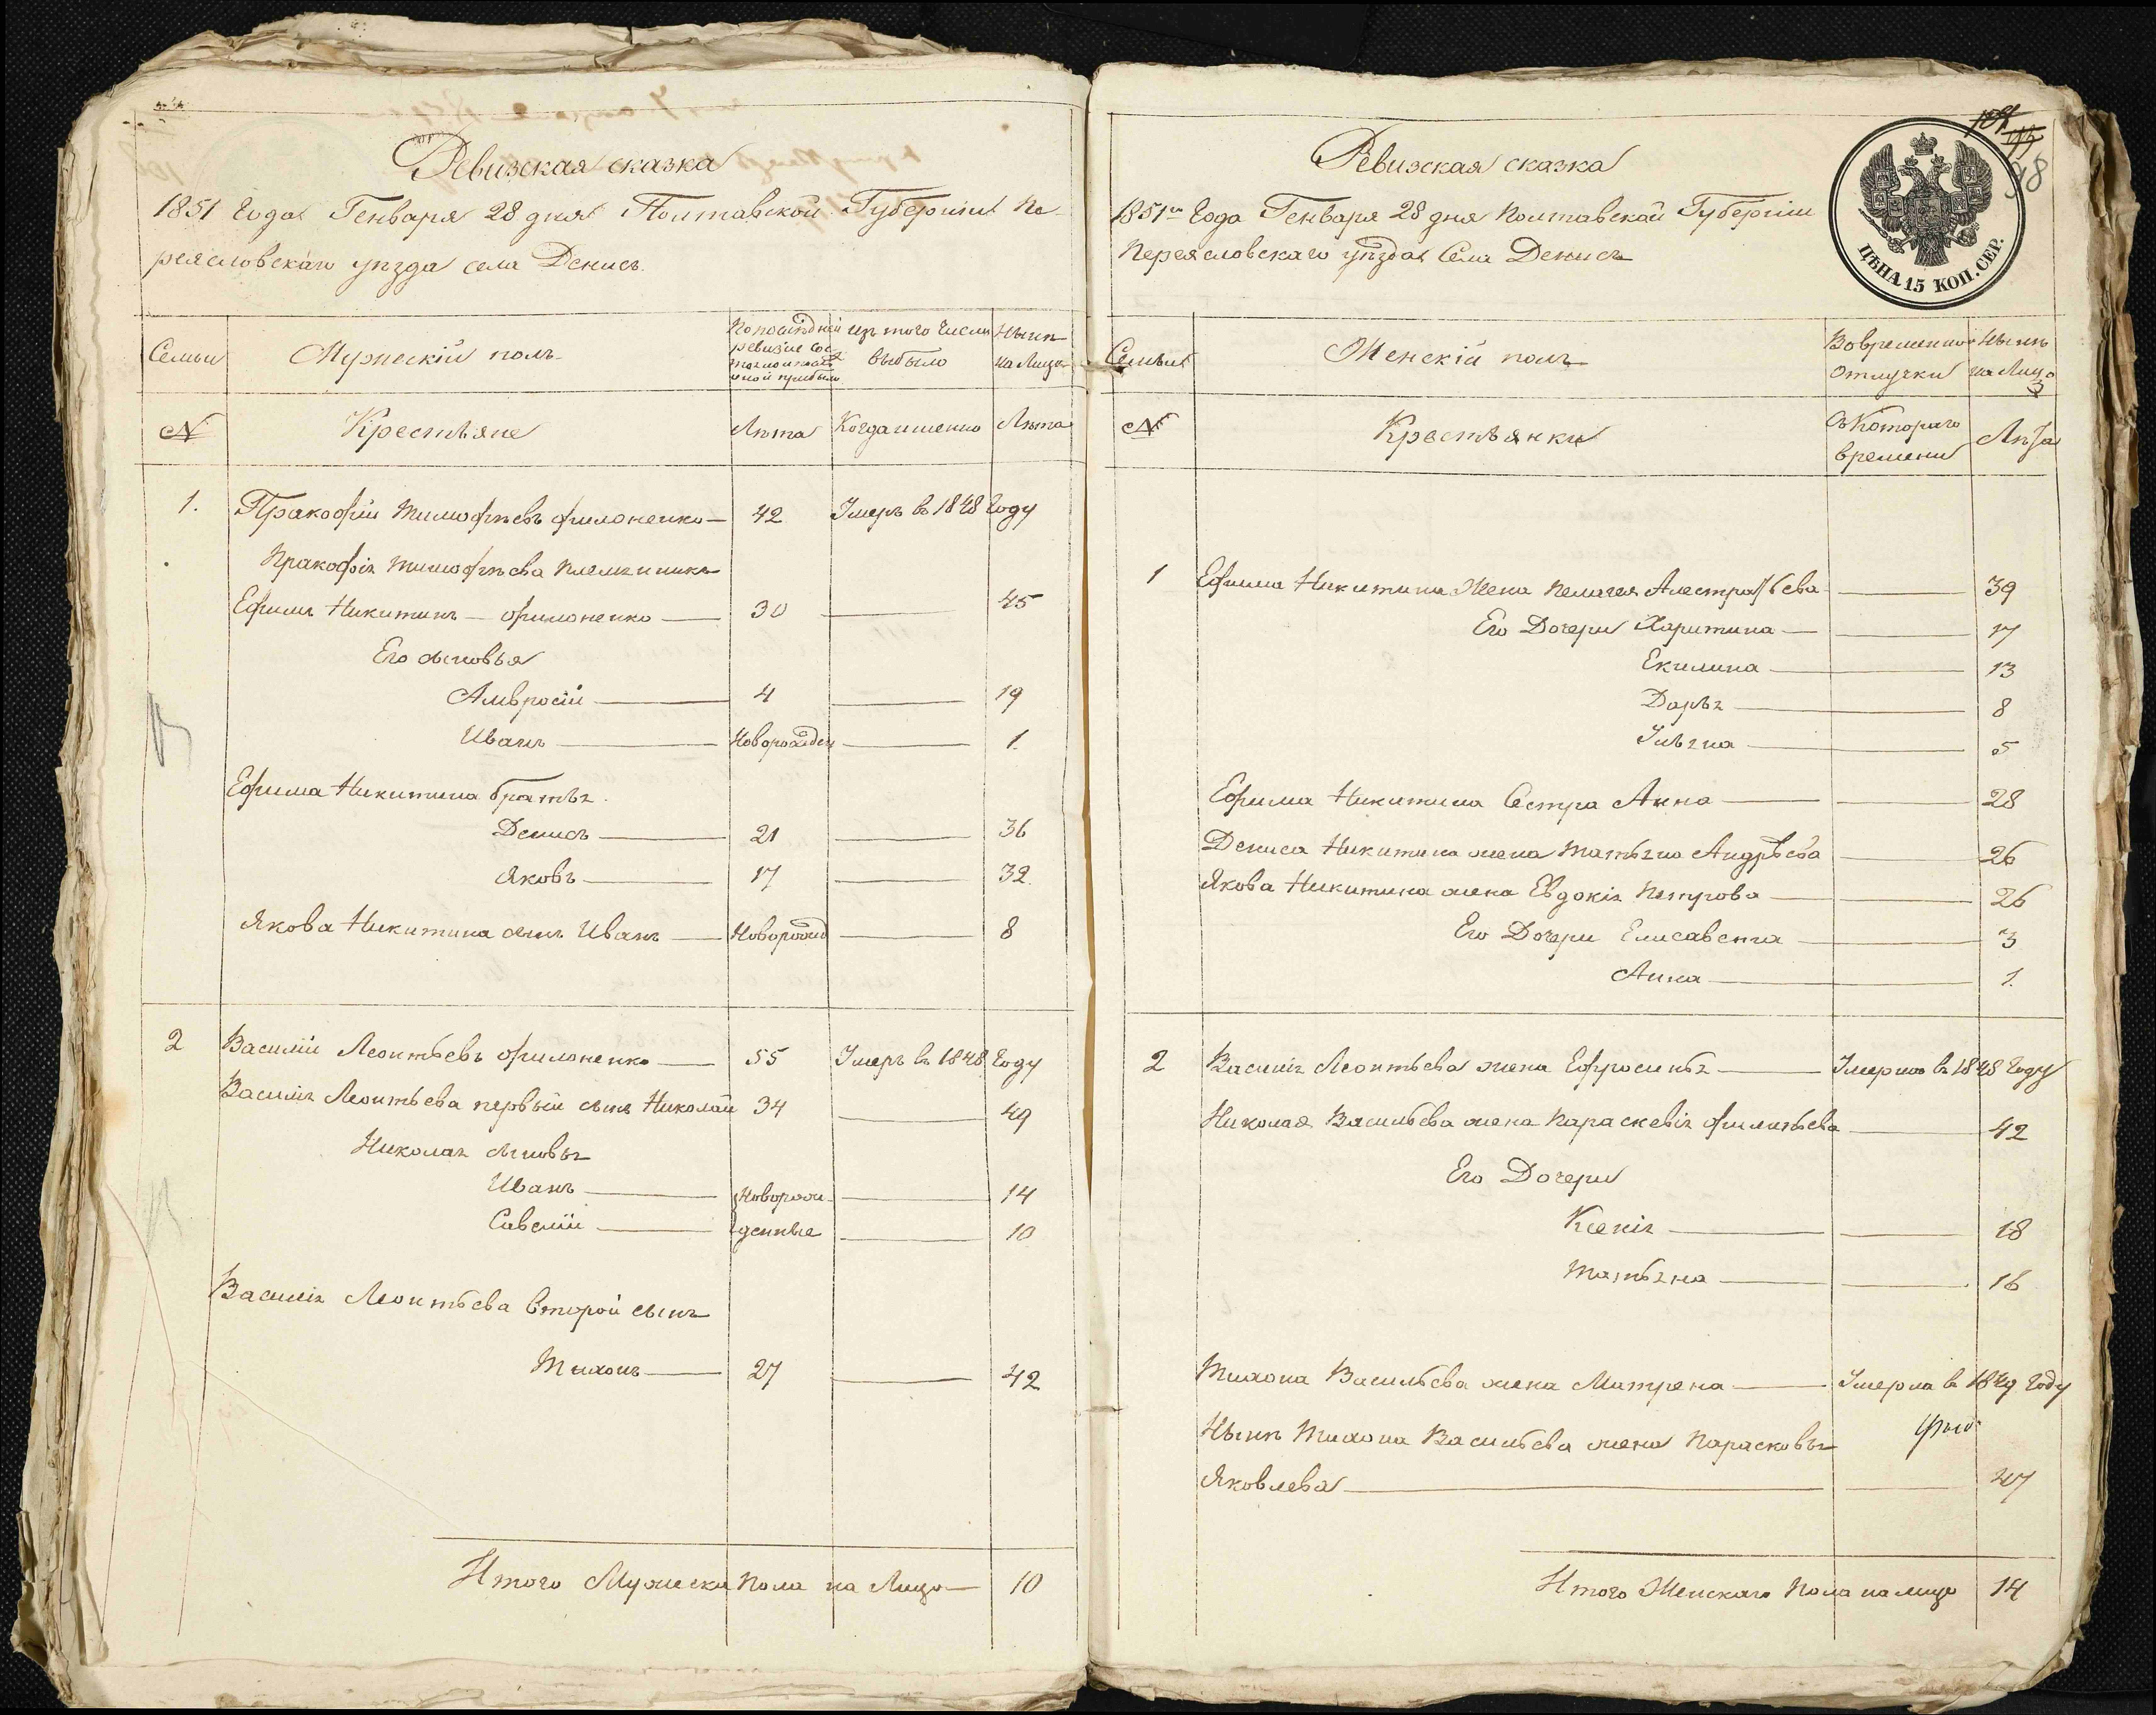 Ревизская сказка
1851 года Генваря 28 дня Полтавской Губернии Пе-
реясловскаго уѣзда села Денисъ.
Семьи
Мужескій полъ
По последней
ревизіе сос-
тояло и после
оной прибыло
изъ того числа
выбыло
Нынѣ
на Лицо
№
Крестьяне
Лѣта
Когда именно
Лѣта
1. Пракофій Тимофѣевъ Филоненко 42 Умеръ в 1848 году
Пракофія Тимофѣева племянникъ
Ефимъ Никитинъ Филоненко 30 45
Его сыновья
Амвросій 4 19
Иванъ Новорожден 1.
Ефима Никитина братья.
Денисъ 21 36
Яковъ 17 32.
Якова Никитина сынъ Иванъ Новорожд 8
2 Василій Леонтьевъ Филоненко 55 Умеръ в 1848 Году
Василія Леонтьева первый сынъ Николай 34 49
Николая сыновья
Иванъ Новорож- 14
Савелій денные 10
Василія Леонтьева второй сынъ
Тихонъ 27 42
Итого Мужеска пола на Лицо 10
Ревизская сказка
1851го Года Генваря 28 дня Полтавской Губерніи
Переясловскаго уѣзда Села Денисъ
ЦѢНА 15 КОП. СЕР.
Семьи
Женскій полъ
Во временной
отлучки
Нынѣ
на Лицо
№
Крестьянки
Съ Котораго
времени
Лѣта
1 Ефима Никитина Жена Пелагея Алестратьева 39
Его Дочери Харитина 17
Екилина 13
Дарья 8
Ульяна 5
Ефима Никитина Сестра Анна 28
Дениса Никитина жена Татьяна Андрѣева 26
Якова Никитина жена Евдокія Петрова 26
Его Дочери Елисавета 3
Анна 1.
2 Василія Леонтьева жена Ефросинья Умерла в 1848 году
Николая Васильева жена Параскевія Филипьева 42
Его Дочери
Ксенія 18
Татьяна 16
Тихона Васильева жена Матрена Умерла в 1849 году
Нынѣ Тихона Васильева жена Парасковья
Яковлева 47
Итого Женскаго Пола на лицо 14